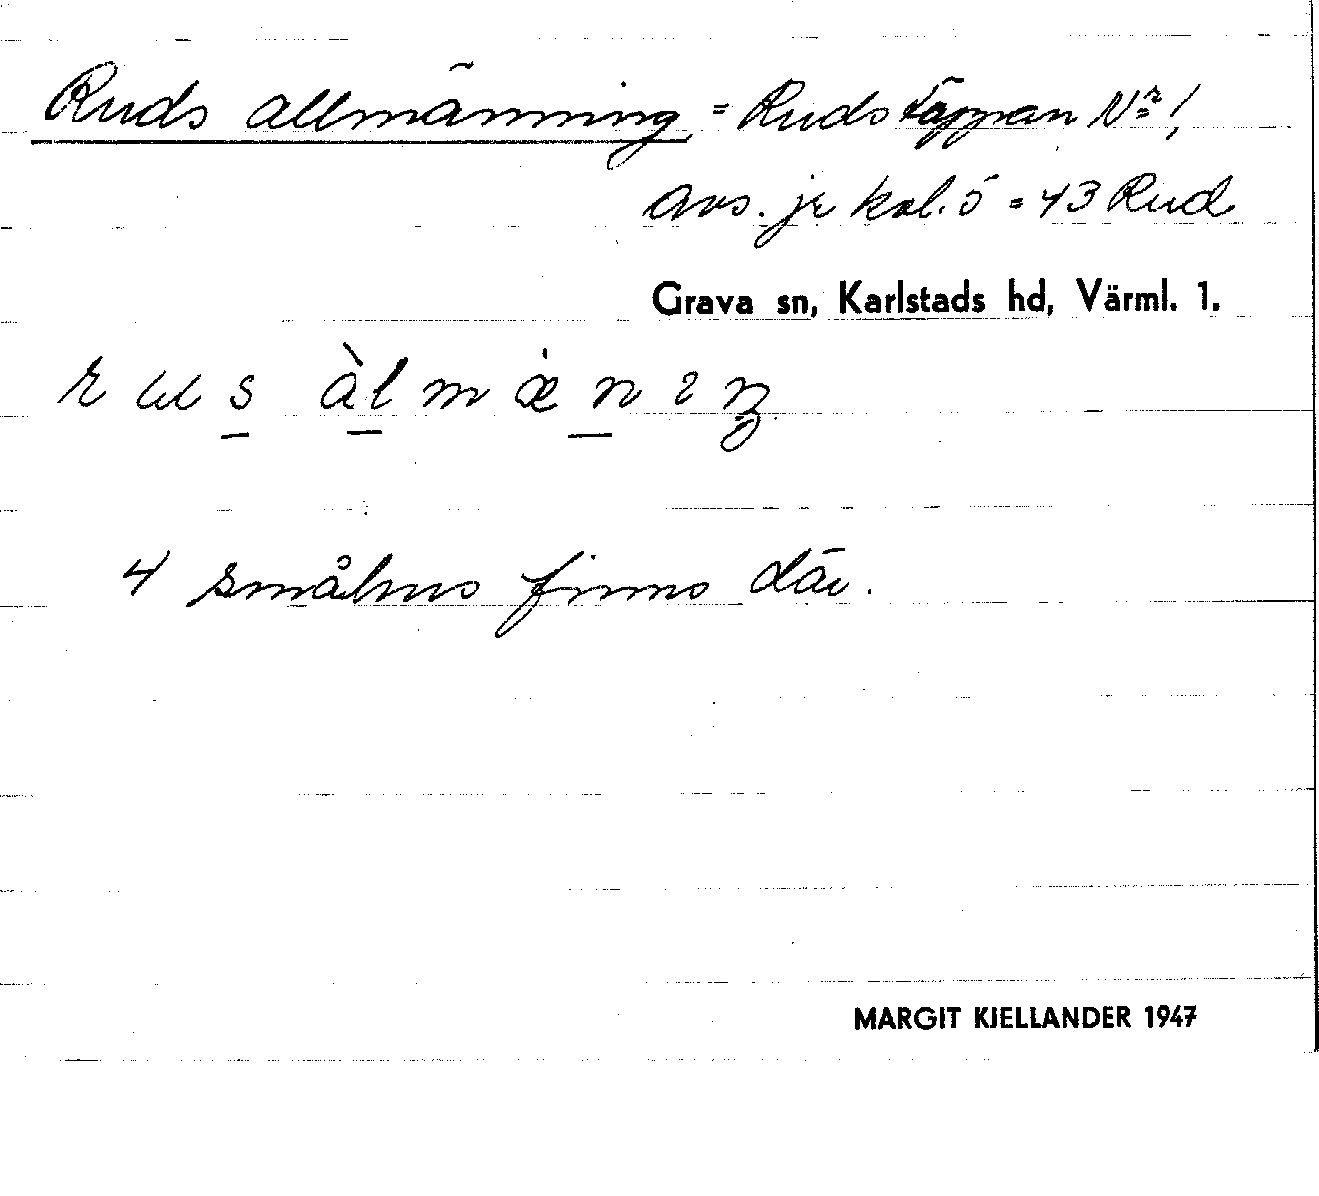 Ruds allmänning = Rudstäppan No 1,
avs. jr kol. 5 = 43 Rud
Grava sn, Karlstads hd, Värml. 1.
s àl m n
4 småhus finns där.
MARGIT KJELLANDER 1947